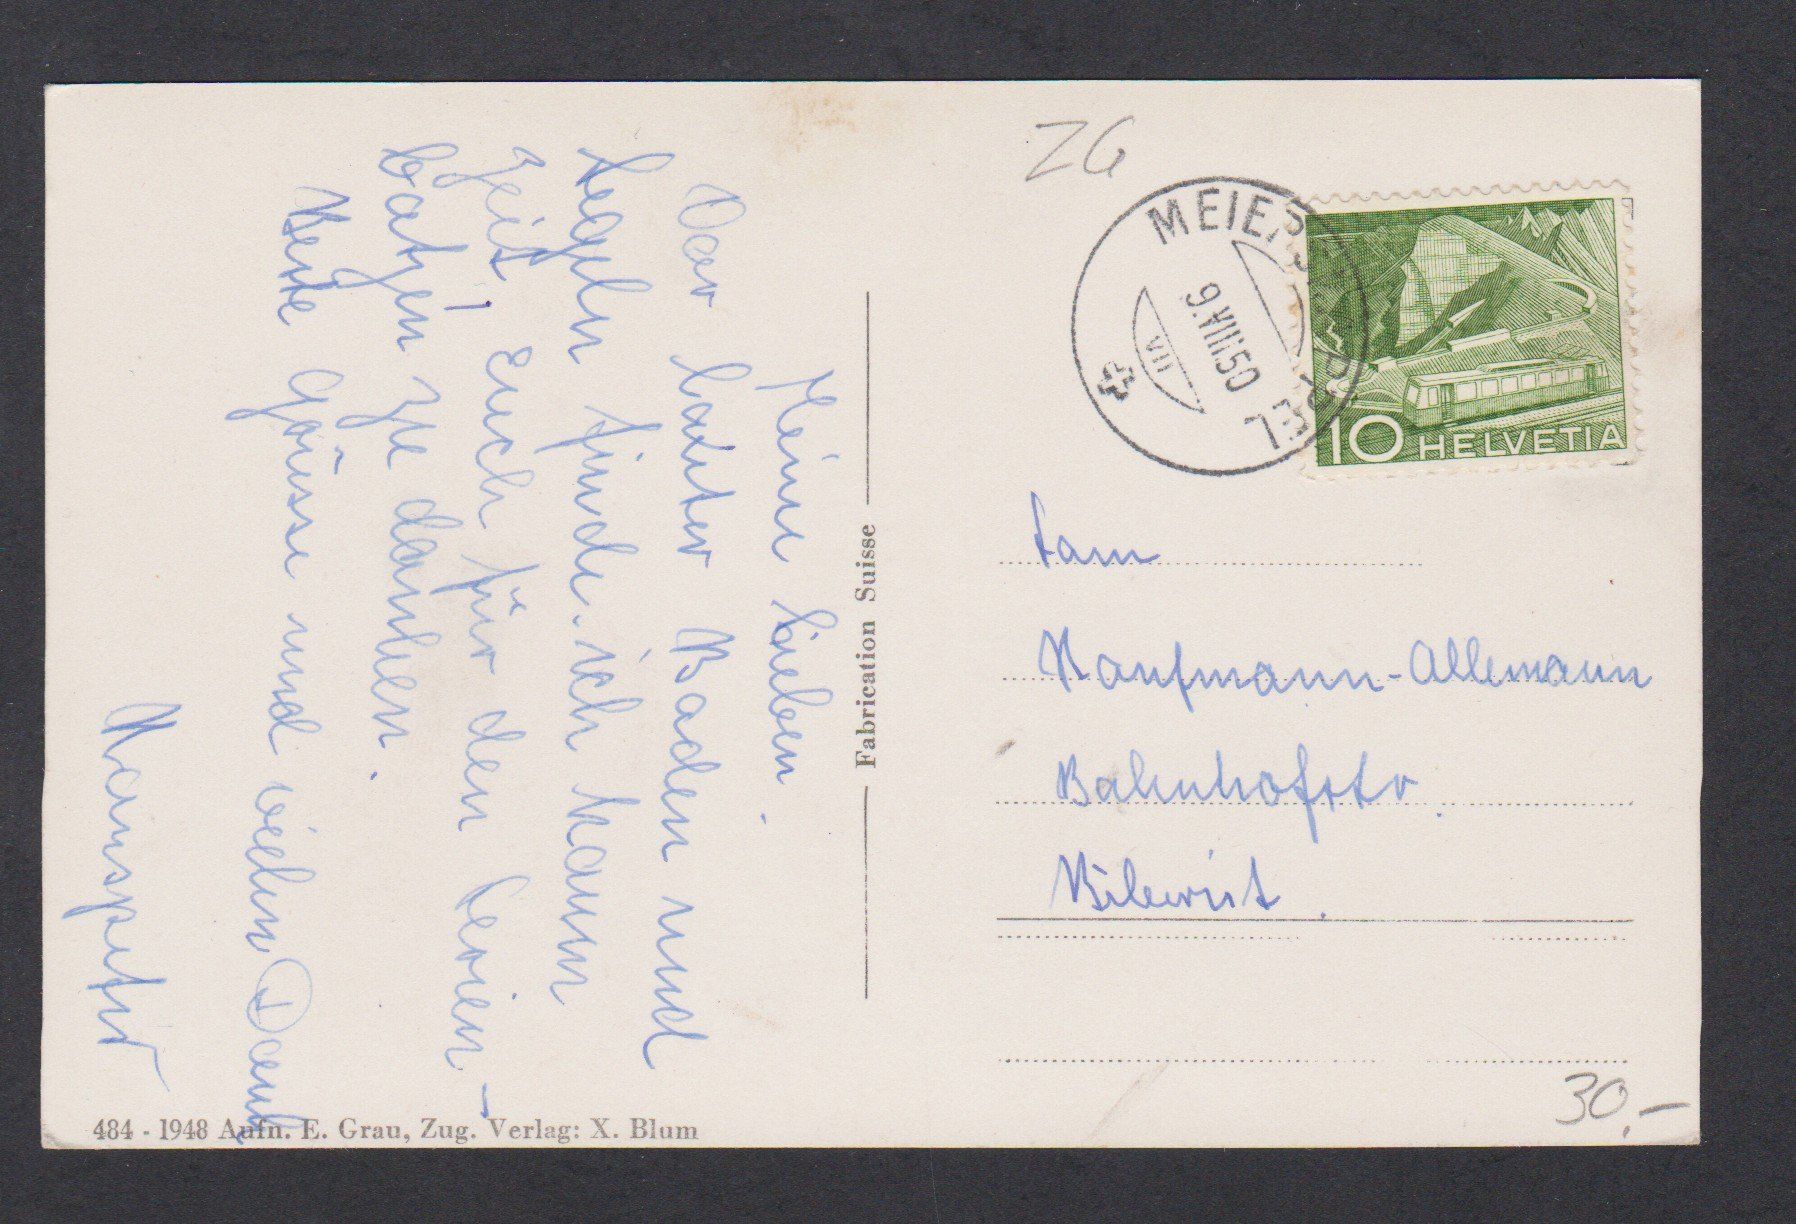 Meine Lieben.
Vor lauter Baden und
Segeln finde ich kaum
Zeit, Euch für den Ferien-
batzen zu danken.
Beste Grüsse und vielen Dank
Hanspeter
Fabrication Suisse
484 - 1948 Aufn. E. Grau, Zug. Verlag: X. Blum
ZG
MEIERSKAPPEL
9.VIII.50
VII
10 HELVETIA
Fam
Kaufmann-Allemann
Bahnhofstr.
Biberist.
30,-